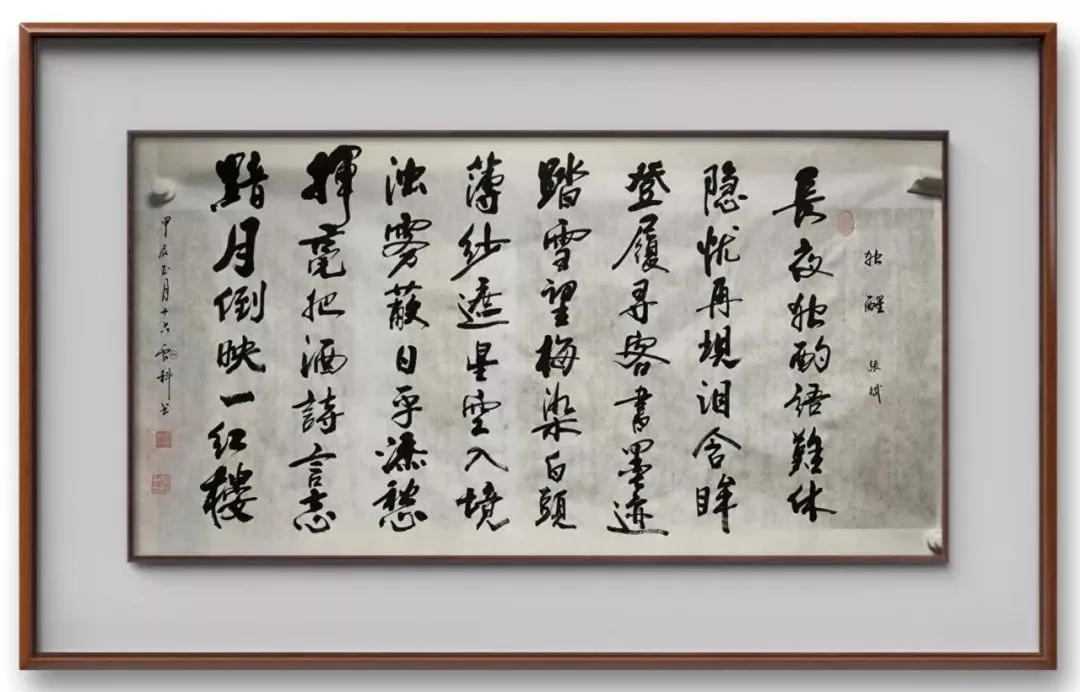 独醒 张斌
長夜独酌语難休
隐忧再現泪含眸
登履寻客書墨迹
踏雪望梅染白頭
薄纱遮星空入境
浊雾散日乎添愁
揮毫把酒詩言志
黯月倒映一红樓
甲辰正月十六云科书